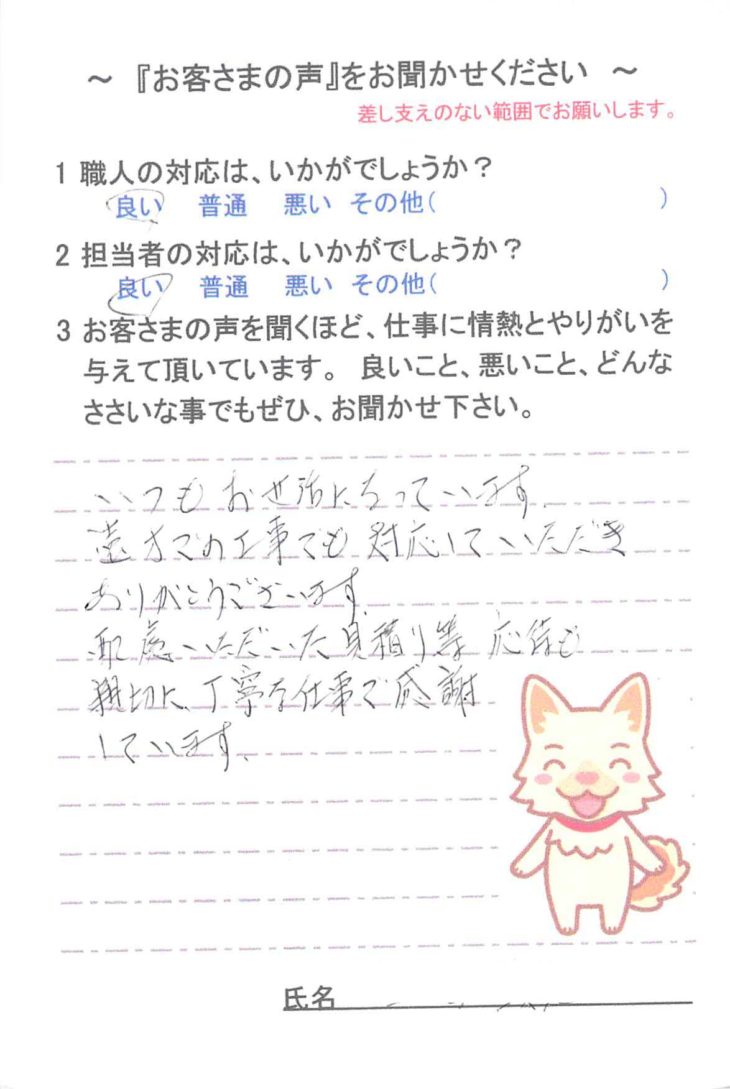 ～『お客さまの声』をお聞かせください ～
差し支えのない範囲でお願いします。
1 職人の対応は、いかがでしょうか？
良い 普通 悪い その他( )
2 担当者の対応は、いかがでしょうか？
良い 普通 悪い その他( )
3 お客さまの声を聞くほど、仕事に情熱とやりがいを
与えて頂いています。 良いこと、悪いこと、どんな
ささいな事でもぜひ、お聞かせ下さい。
いつもお世話になっています。
遠方での工事でも対応していただき
ありがとうございます。
配慮いただいた見積り等 応待も
親切に、丁寧な仕事で感謝
しています。
氏名